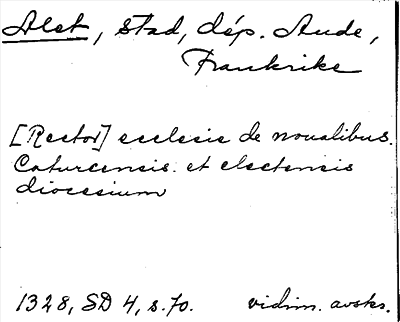 Alet, stad, dép. Aude,
Frankrike
[Rector] ecclesie de noualibus.
Caturcensis. et electensis
diocesium
1328, SD 4, s. 70. vidim. avskr.